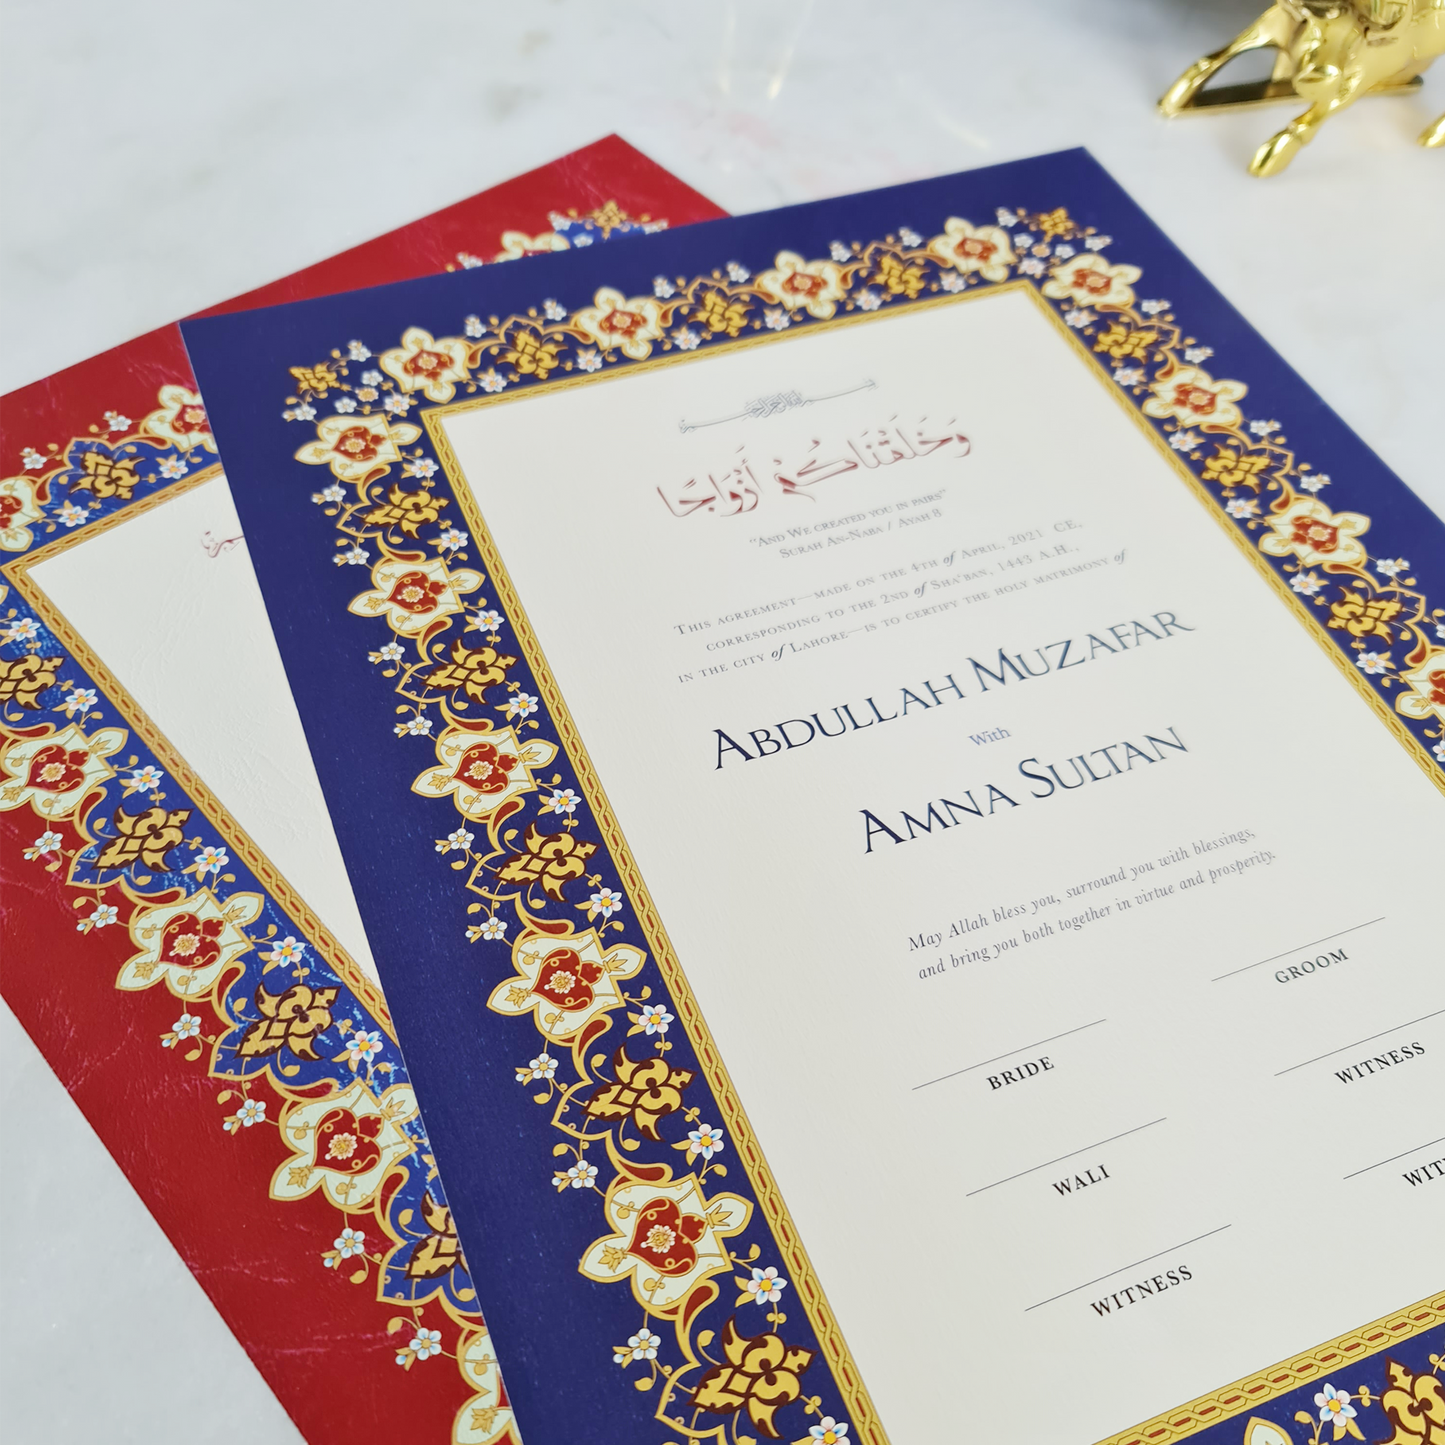 وَخَلَقْنَاكُمْ أَزْوَاجًا
"And We created you in pairs"
Surah An-Naba / Ayah 8
This agreement—made on the 4th of April, 2021 CE,
corresponding to the 2nd of Sha'ban, 1443 A.H.,
in the city of Lahore—is to certify the holy matrimony of
Abdullah Muzafar
With
Amna Sultan
May Allah bless you, surround you with blessings,
and bring you both together in virtue and prosperity.
GROOM
BRIDE
WITNESS
WALI
WITNESS